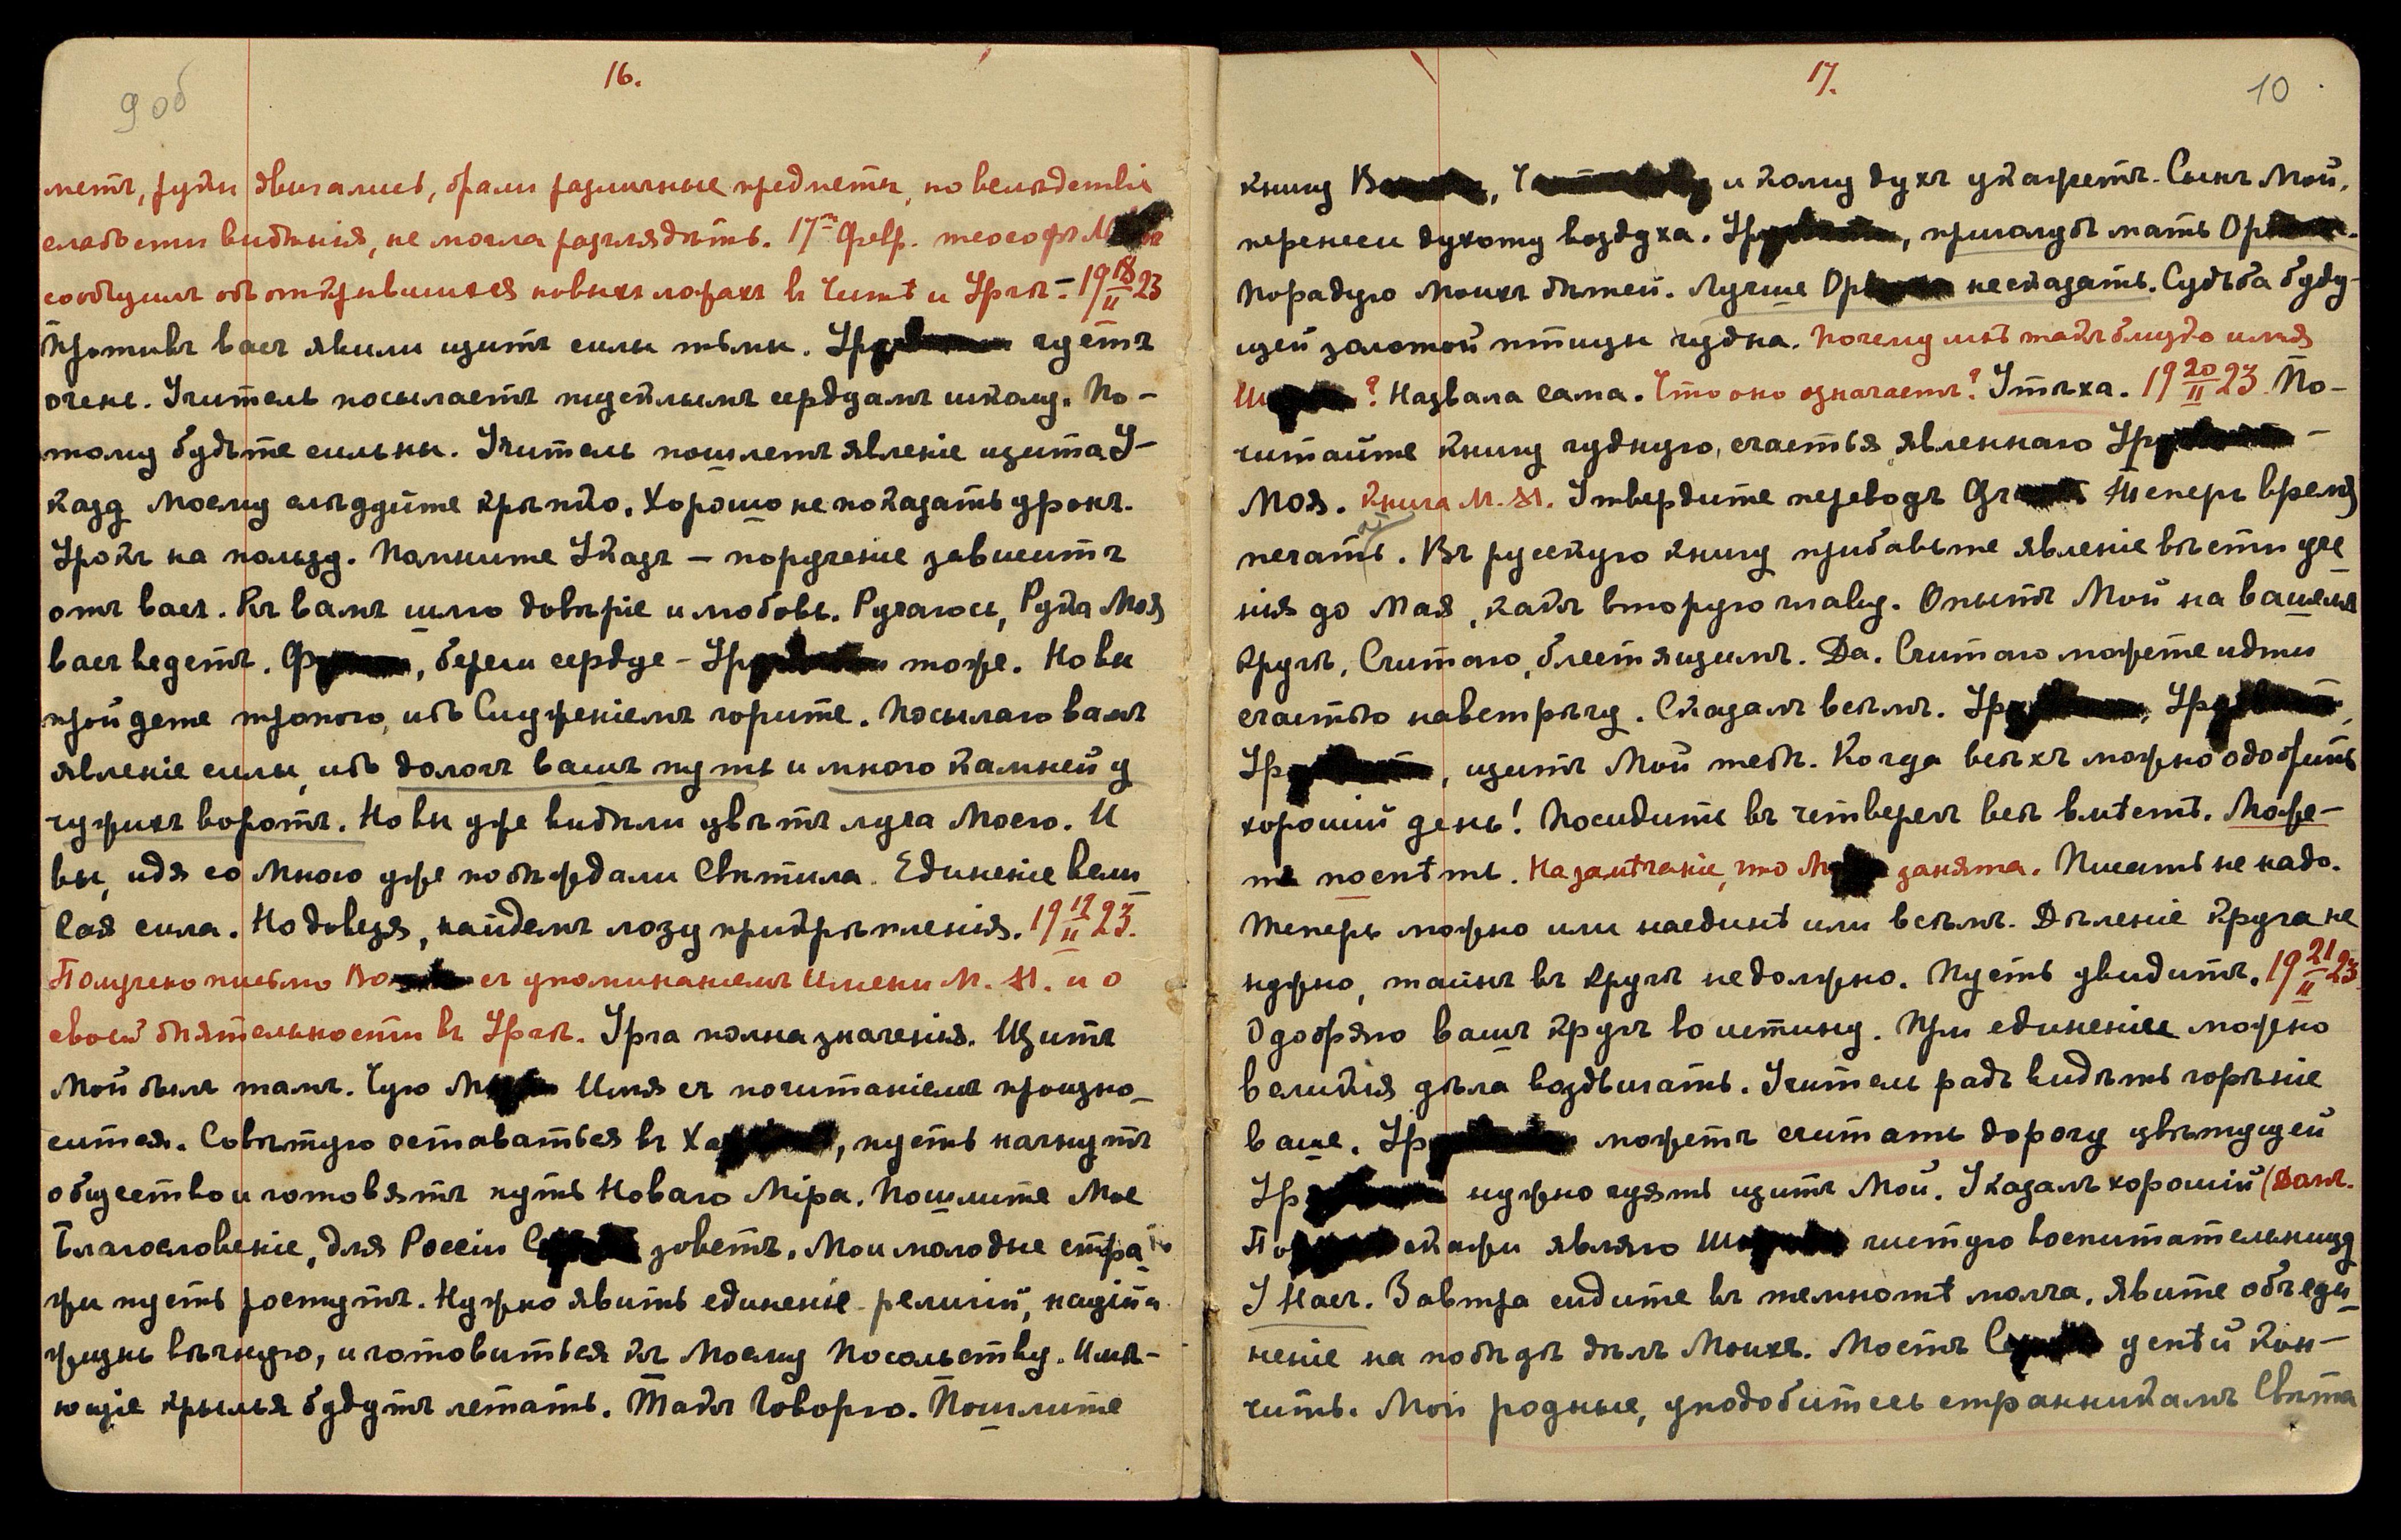 9 об
16.
метъ, руки двигались, брали различные предметы, но вслѣдствіе
слабости видѣнія, не могла разглядѣть. 17го февр. теософъ
сообщилъ объ открывшихся новыхъ ложахъ въ Читѣ и Ургѣ. – 19 18/II 23
Противъ васъ явили щитъ силы тьмы. Ур чуетъ
очень. Учитель посылаетъ сердцамъ школу. По-
тому будьте сильны. Учитель пошлетъ явленіе щита У-
казу Моему слѣдуйте крѣпко. Хорошо не показать уронъ.
Урокъ на пользу. Помните Указъ – порученіе зависитъ
отъ васъ. Къ вамъ шлю довѣріе и любовь. Ручаюсь, Рука Моя
васъ ведетъ. , береги сердце – Ур тоже. Но вы
пройдете тропою, ибо Служеніемъ горите. Посылаю вамъ
явленіе силы, ибо дологъ вашъ путь и много камней у
чужихъ воротъ. Но вы уже видѣли цвѣтъ луча Моего. И
вы, идя со Мною уже побѣждали Свѣтила. Единеніе вели
кая сила. Но доведя, найдемъ лозу прикрѣпленія. 19 19/II 23.
Получено письмо Во съ упоминаніемъ Имени М. М. и о
своей дѣятельности въ Ургѣ. Урга полна значенія. Щитъ
Мой былъ тамъ. Чую М Имя съ почитаніемъ произно-
сится. Совѣтую оставаться въ Ха , пусть начнутъ
общество и готовятъ путь Новаго Міра. Пошлите Мое
Благословеніе, для Россіи С зоветъ. Мои молодые стра
жи пусть ростутъ. Нужно явить единеніе религій, націй и
жизнь вѣчную, и готовиться къ Моему Посольству. Имѣ-
ющіе крылья будутъ летать. Такъ Говорю. Пошлите
17.
10
книгу В , Ч и кому духъ укажетъ. Сынъ Мой,
перенеси духоту воздуха. Ур , приголубь мать Ор .
Порадую Моихъ дѣтей. Лучше Ор не сказать. Судьба буду-
щей золотой птицы чудна. Почему мнѣ такъ близко имя
Ш ? Назвала сама. Что оно означаетъ? Утѣха. 19 20/II 23. По-
читайте книгу чудную, счастья явленнаго Ур –
Моя. Книга М. М. Утвердите переводъ Теперь время
печати. Въ русскую книгу прибавьте явленіе вѣсти уче
нія до Мая, какъ вторую главу. Опытъ Мой на вашемъ
кругѣ, Считаю, блестящимъ. Да. Считаю можете идти
счастью навстрѣчу. Сказалъ всѣмъ. Ур , Ур ,
Ур , щитъ Мой тебѣ. Когда всѣхъ можно одобрить
хорошій день! Посидите въ четвергъ всѣ вмѣстѣ. Може-
те поспѣть. На замѣчаніе, что М занята. Писать не надо.
Теперь можно или наединѣ или всѣмъ. Дѣленіе круга не
нужно, тайнъ въ кругѣ не должно. Пусть увидитъ. 19 21/II 23.
Одобряю вашъ кругъ во истину. При единеніи можно
великія дѣла воздвигать. Учитель радъ видѣть горѣніе
ваше. Ур можетъ считать дорогу цвѣтущей
Ур нужно чуять щитъ Мой. Указалъ хорошій (Далъ.
По скажи являю Ш чистую воспитательницу
У Насъ. Завтра сидите въ темнотѣ молча. Явите объеди
неніе на побѣду дѣлъ Моихъ. Мостъ С успѣй кон-
чить. Мои родные, уподобитесь странникамъ Свѣта